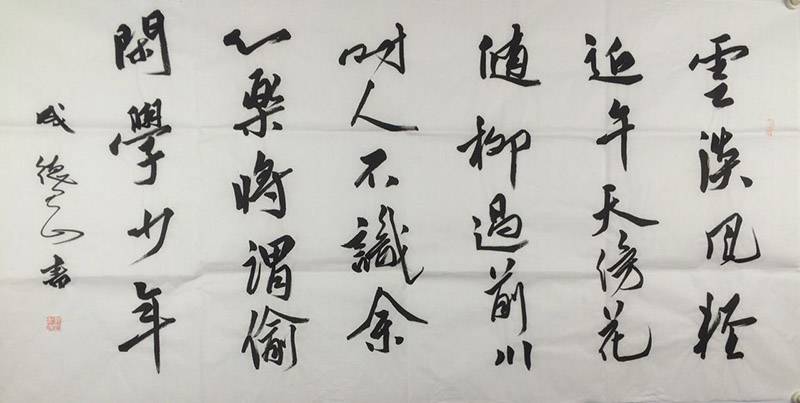 雲淡風輕
近午天傍花
随柳過前川
时人不識余
心樂將謂偷
閑學少年